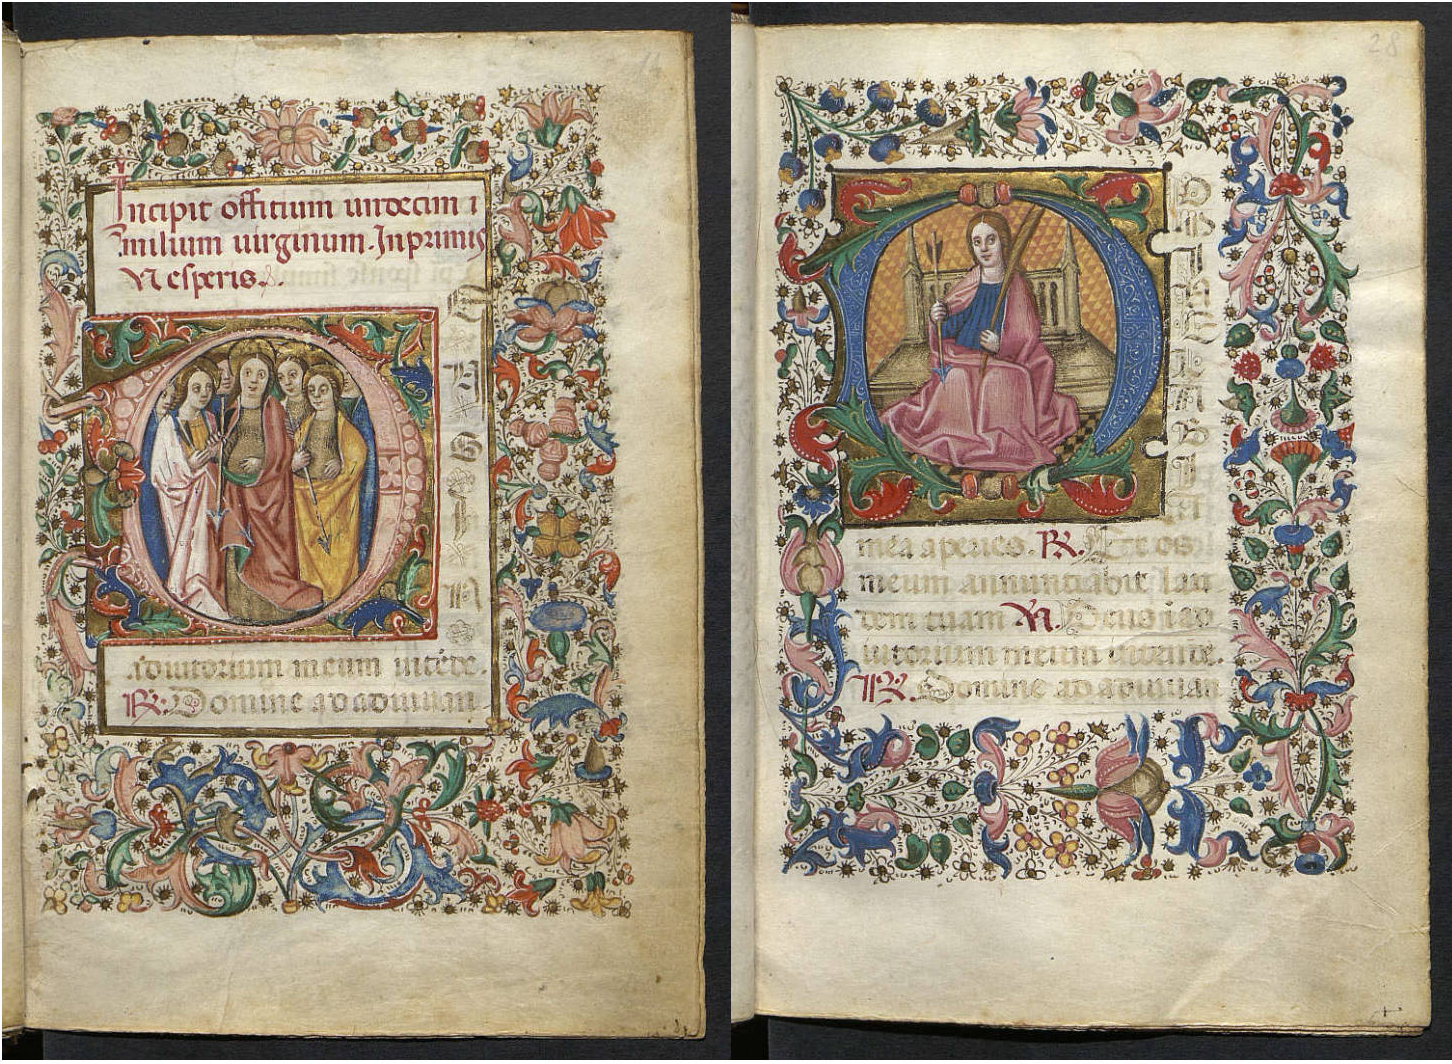 Incipit offitium undecim
milium uirginum. Inprimis
Vesperis.
D
E
V
S
I
N
adiutorium meum intēde.
R. Domine ad adiuuan
28
D
O
M
I
N
E
L
A
B
I
A
mea aperies. R. Et os
meum annuntiabit lau
dem tuam V. Deus i ad
iutorium meum intende.
R. Domine ad adiuuan